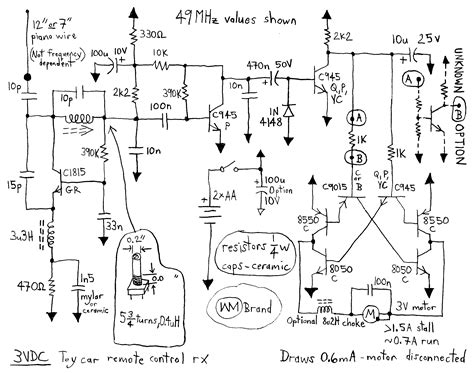 49MHz values shown
12" or 7"
piano wire
(Not frequency
dependent)
330Ω
100u 10V
10K
2K2
390K
100n
10n
10n
C945
P
470n 50V
1N
4148
2K2
C945
Q, P,
YC
10u 25V
UNKNOWN
OPTION
A
B
A
1K
B
1K
10p
10p
390K
C1815
GR
15p
33n
3.3H
470Ω
1n5
mylar or
ceramic
0.2"
5 3/4 turns, 0.4uH
2xAA
100u
Option
10V
resistors 1/4 W
caps-ceramic
WM Brand
C9015
C or
B
Q, P,
YC
C945
8550
C
8550
C
8050
C
8050
C
100n
M
3V motor
Optional 802H choke
>1.5A stall
~0.7A run
3VDC Toy car remote control rx
Draws 0.6mA - motor disconnected